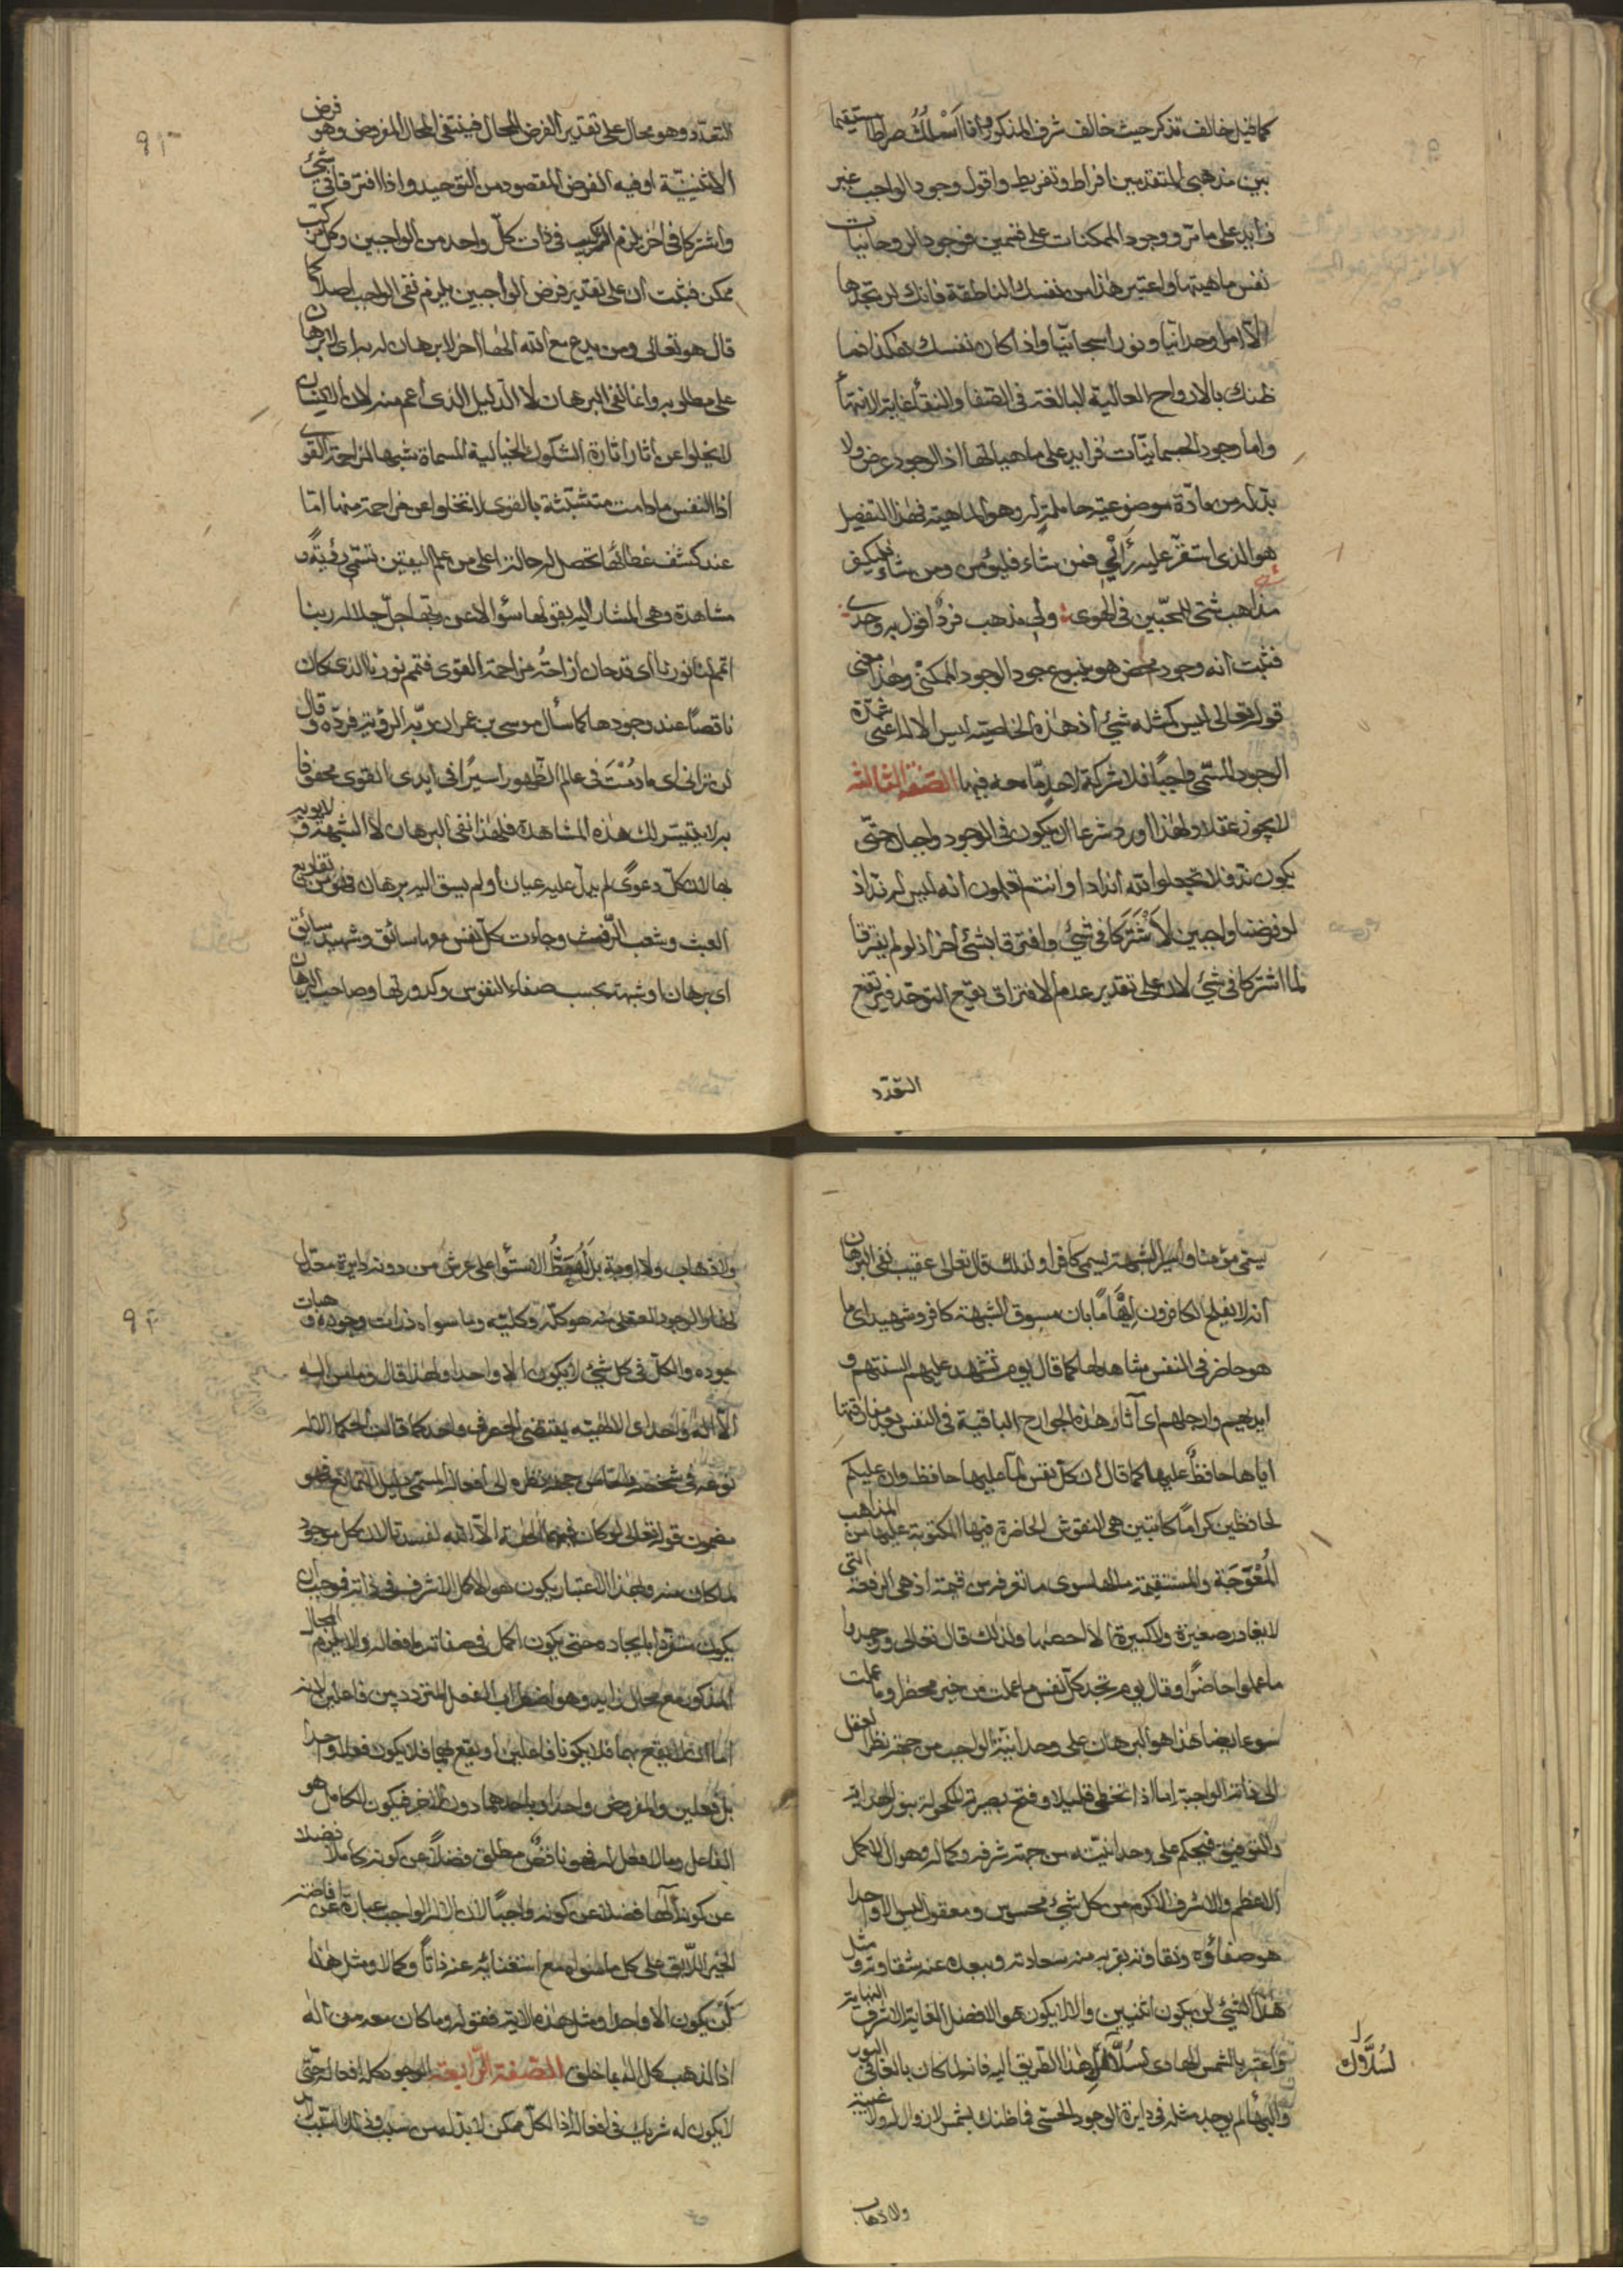 كما قيل خالف تذكر حيث خالف شرف المذكور وأما أسلك صراطا مستقيما
بين مذهبي المتقدمين افراط وتفريط واقول وجود الواجب غير
زايد على ما مرّ ووجود الممكنات على قسمين فوجود الروحانيات
نفس ماهيتها واعتبر هذا من نفسك الناطقة فانك لن تجدها
الّا امرا وحدانيا ونورا سبحانيّا واذا كان نفسك هكذا فما
ظنك بالارواح العالية البالغة فى الصفا والنقا غاية الانتها
واما وجود الجسمانيّات فزايد على ماهياتها اذ الوجود عرض ولا
بدّ له من مادّة موضوعيّة حاملة له وهو الماهية فهذا التفصيل
هو الذى استقرّ عليه رأيى فمن شاء فليؤمن ومن شاء فليكفر
مذاهب شتى للمحبّين فى الهوى ولى مذهب فردٌ اقول به وحدى
فثبت أنه وجود محض هو ينبوع جود الوجود الممكنى وهذا معنى
قوله تعالى ليس كمثله شئ اذ هذه الخاصية ليس الا له اعنى شدّة
الوجود المسمّى واجبا فلا شركة لاحد ما معه فيها الصفة الثالثة
لا يجوز عقلا ولهذا ورد شرعا ان يكون فى الوجود واجبان حتّى
يكون ندّ فلا تجعلوا لله أندادا وانتم تعلمون أنه ليس له ندّ اذ
لو فرضنا واجبين لاشتركا فى شئ وافترقا بشئ آخر اذ لو لم يفترقا
لما اشتركا فى شئ لان على تقدير عدم الافتراق يقع التوحّد فيرتفع
التعدّد
التعدّد وهو محال على تقدير الفرض المحال فينتفى المحال المفروض وهو فرض
الاثنينيّة او فيه الفرض المقصود من التوحيد واذا افترقا فى شئ
واشتركا فى آخر يلزم التركيب فى ذات كلّ واحد من الواجبين وكل مركّب
ممكن فثبت ان على تقدير فرض الواجبين يلزم نفى الواجب اصلا كما
قال هو تعالى ومن يدع مع الله الها آخر لا برهان له به اى لا برهان
على مطلوبه وانما نفى البرهان لا الدليل الذى اعم منه لان
لا يخلوا عن آثار اثارة الشكوك الخيالية المسماة شبها لمزاحمة القوى
اذ النفس ما دامت متشبّثة بالقوى لا تخلوا عن مزاحمة منها امّا
عند كشف غطائها تحصل له حالة اعلى من علم اليقين تسمّى رؤيةً و
مشاهدة وهى المشار اليه بقولها سؤالا عن ربّها جلّ جلاله ربنا
اتمم لنا نورنا أى قد حان ازاحة مزاحمة القوى فتمم نورنا الذى كان
ناقصًا عند وجودها كما سأل موسى بن عمران ربّه الرؤية فردّه وقال
لن ترانى اى ما دمت فى عالم الظهور اسيرا فى ايدى القوى محفوفا
به لا يتيسّر لك هذه المشاهدة فلهذا نفى البرهان لا الشبهة
لان كلّ دعوى لم يدلّ عليه عيان أو لم يسق اليه برهان فهو من تفاريع
العبث وشعب الرّفث وجاءت كلّ نفس معها سائق وشهيد سائق
اى برهان او شبهة بحسب صفاء النفوس وكدورتها وصاحب البرهان
يسمّى مؤمنا وأسير الشبهة يسمى كافرا ولذلك قال تعالى عقيب نفى البرهان
أنه لا يفلح الكافرون إيهاما بان مسوق الشبهة كافر وشهيد اى ما
هو حاضر فى النفس مشاهد لها كما قال يوم تشهد عليهم السنتهم و
ايديهم وارجلهم اى آثار هذه الجوارح الباقية فى النفس بعد مفارقتها
اياها حافظٌ عليها كما قال ان كلّ نفس لمّا عليها حافظ وان عليكم
لحافظين كراما كاتبين هى النقوش الحاضرة فيها المكتوبة عليها من المذاهب
المعوّجة والمستقيمة
لا يغادر صغيرة ولا كبيرة الّا احصيها ولذلك قال تعالى ووجدوا
ما عملوا حاضرا وقال يوم تجد كلّ نفس ما عملت من خير محضرا وما عملت
سوء ايضا هذا هو البرهان على وحدانيّة الواجب من جهة نظر العقل
الى ذاته الواجبة اما اذا تخطى قليلا وفتح بصيرته المكحولة بنور الهداية
والتوفيق فيحكم على وحدانيّته من جهة شرفه وكماله وهو ان الاكمل
الاعظم والاشرف الاكرم من كل شئ محسوس ومعقول ليس الا واحدا
هو صفاؤه ونقاوته بقربه منه سعادته وببعده عنه شقاوته ومثل
هذا الشئ لن يكون اثنين والا لا يكون هو الافضل الغاية الاشرف النهاية
واعتبر بالشمس الهادى لسلّاك هذا الطريق اليه فانه لما كان بالغا فى النور
والبها لم يوجد مثله فى دايرة الوجود الحسّى فما ظنك بشمس لا زوال له ولا غيبة
لسُلّاك
ولا ذهاب
ولا ذهاب ولا اوبة بل الاستواء على عرش من دونه دايرة معدّل
النهار والوجود العقلى منه هو كلّه وكليّته وما سواه ذرات وجوده وهبات
جوده والكلّ فى كل شئ لا يكون الا واحدا ولهذا قال وما من اله
الّا اله واحد اى الالهيّة يقتضى واحد كما قالت الحكما الاله
نوعه فى شخصه والخاص جهة نظره الى افعاله المسمّى دليل التمانع فهو
مضمون قوله تعالى لو كان فيهما آلهة الّا الله لفسدتا لان كل موجود
لما كان منه وبهذا الاعتبار يكون هو الاكمل الاشرف فى ذاته فوجب ان
يكون متفرّدا بايجاده حتى يكون اكمل فى صفاته وافعاله والا يلزم المحال
المذكور مع محال زايد وهو اضطراب الفعل المتردد بين فاعلين لانه
اما ان لا يقع بهما فلا يكونا فاعلين أو يقع بهما فلا يكون فعلا واحدا
بل فعلين والمفروض واحد او باحدهما دون الآخر فيكون الكامل هو
الفاعل وما لا فعل له فهو ناقص مطلق فضلا عن كونه كاملا فضلا
عن كونه الها فضلا عن كونه واجبًا لان الاله الواجب عبارة عن افاضته
الخير اللايق على كل ما سواه مع استغنائه عنه ذاتاً وكمالا ومثل هذا
لن يكون الا واحدا ومثل هذه الآية فقوله وما كان معه من اله
اذا لذهب كل اله بما خلق الصفة الرابعة الوجود كله افعاله حتّى
لا يكون له شريك فى افعاله اذ الكلّ ممكن لا بدّ له من سبب